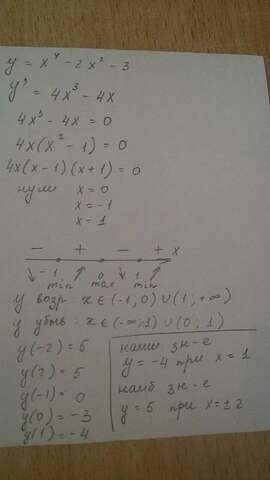 y = x⁴ - 2x² - 3
y' = 4x³ - 4x
4x³ - 4x = 0
4x(x² - 1) = 0
4x(x-1)(x+1) = 0
нули x = 0
x = -1
x = 1
- + - + x
-1 0 1
min max min
y возр: x ∈ (-1; 0) ∪ (1; +∞)
y убыв: x ∈ (-∞; 1) ∪ (0; 1)
y(-2) = 5
y(2) = 5
y(-1) = 0
y(0) = -3
y(1) = -4
наим зн-е
y = -4 при x = 1
наиб зн-е
y = 5 при x = ±2